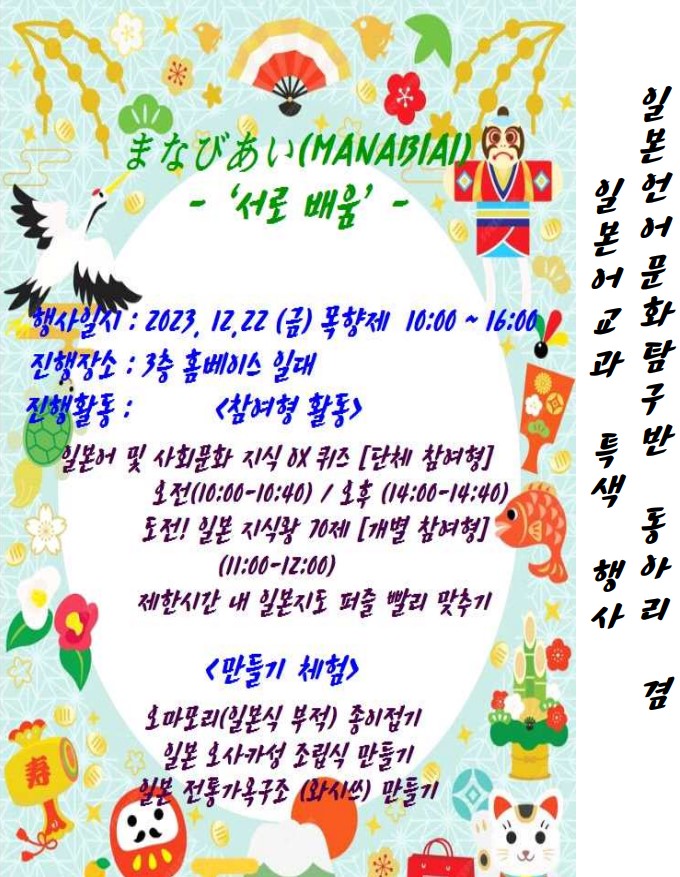 まなびあい(MANABIAI)
- ‘서로 배움’ -
행사일시 : 2023. 12.22 (금) 목향제 10:00 ~ 16:00
진행장소 : 3층 홈베이스 일대
진행활동 : <참여형 활동>
일본어 및 사회문화 지식 OX 퀴즈 [단체 참여형]
오전(10:00-10:40) / 오후 (14:00-14:40)
도전! 일본 지식왕 70제 [개별 참여형]
(11:00-12:00)
제한시간 내 일본지도 퍼즐 빨리 맞추기
<만들기 체험>
오마모리(일본식 부적) 종이접기
일본 오사카성 조립식 만들기
일본 전통가옥구조 (와시쓰) 만들기
寿
일본언어문화탐구반 동아리 겸
일본어교과 특색 행사